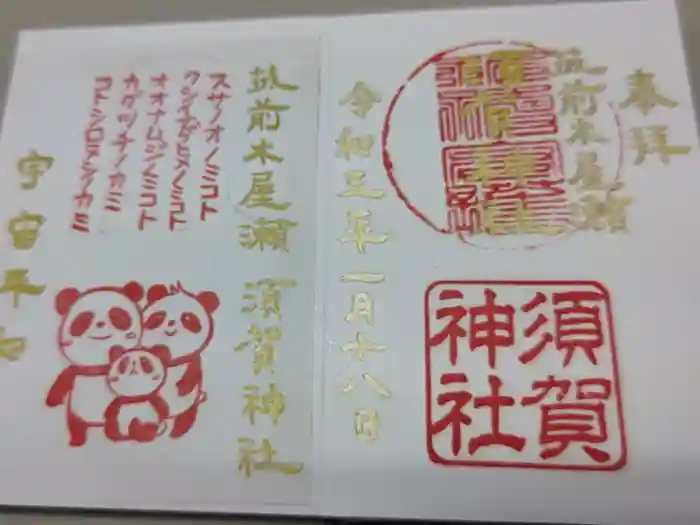 奉拝
筑前木屋瀬
須賀
神社
令和三年一月十八日
筑前木屋瀬 須賀神社
スサノオノミコト
クシイナダヒメノミコト
オオナムジノミコト
カグツチノカミ
コトシロヌシノカミ
宇宙平和